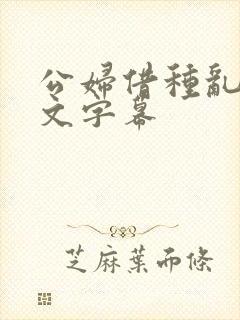 公婦借種亂
文字幕
芝麻葉而條